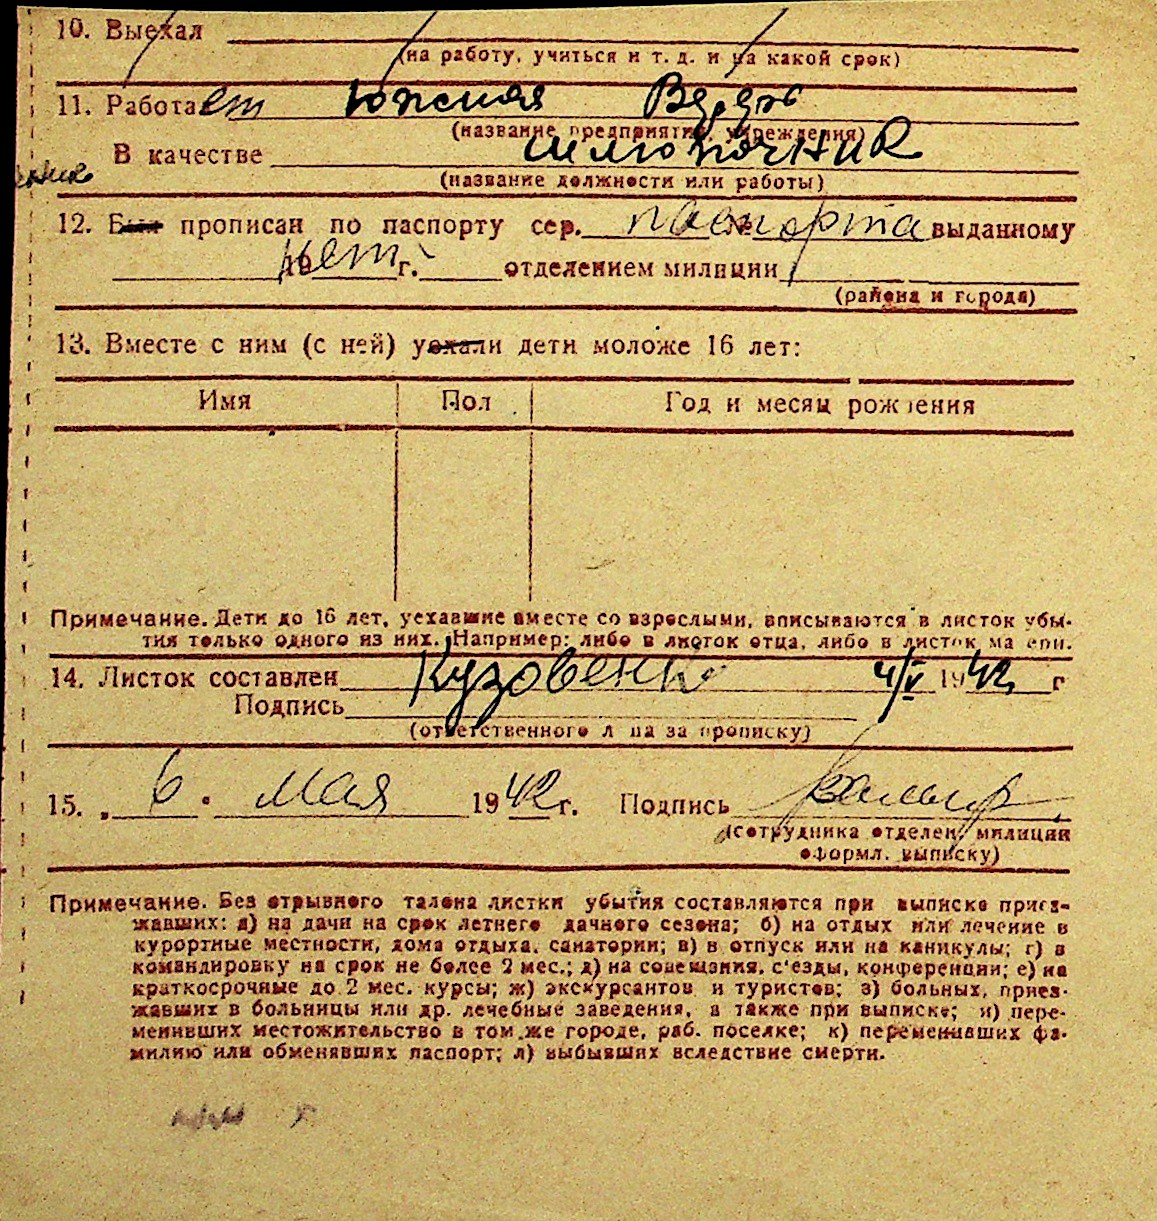 10. Выехал
(на работу, учиться и т. д. и на какой срок)
11. Работает Южная Верфь
(название предприятия, учреждения)
В качестве шлюпочник
(название должности или работы)
12. Был прописан по паспорту сер. паспорта № выданному
нет 19 г. отделением милиции
(района и города)
13. Вместе с ним (с ней) уехали дети моложе 16 лет:
Имя Пол Год и месяц рождения
Примечание. Дети до 16 лет, уехавшие вместе со взрослыми, вписываются в листок убы-
тия только одного из них. Например: либо в листок отца, либо в листок матери.
14. Листок составлен Кузовенко 4/V 1942 г
Подпись
(ответственного лица за прописку)
15. „ 6 " мая 1942 г. Подпись
(сотрудника отделен. милиции
оформл. выписку)
Примечание. Без отрывного талона листки убытия составляются при выписке приез-
жавших: а) на дачи на срок летнего дачного сезона; б) на отдых или лечение в
курортные местности, дома отдыха, санатории; в) в отпуск или на каникулы; г) в
командировку на срок не более 2 мес.; д) на совещания, с'езды, конференции; е) на
краткосрочные до 2 мес. курсы; ж) экскурсантов и туристов; з) больных, приез-
жавших в больницы или др. лечебные заведения, а также при выписке; и) пере-
менивших местожительство в том же городе, раб. поселке; к) переменивших фа-
милию или обменявших паспорт; л) выбывших вследствие смерти.